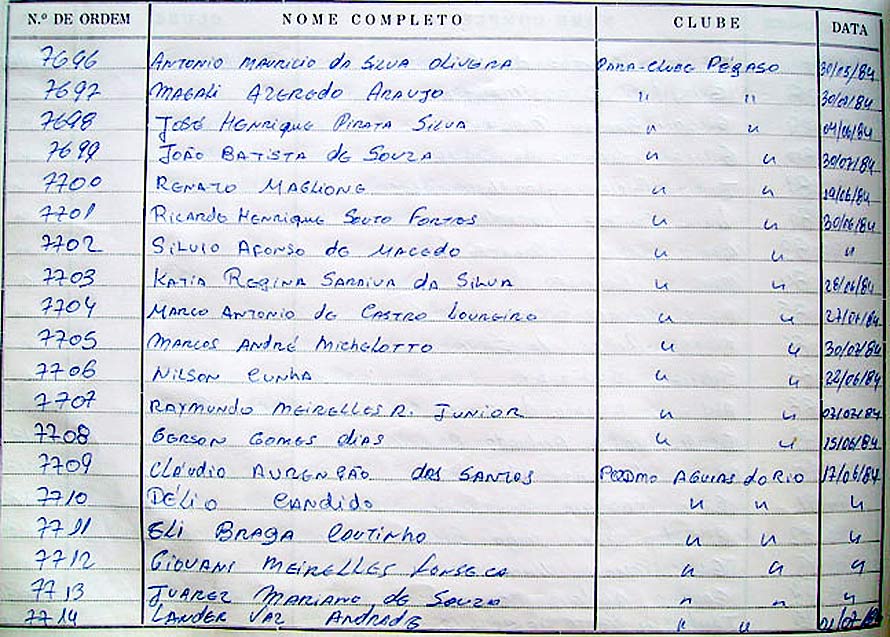 N.º DE ORDEM NOME COMPLETO CLUBE DATA
7696 ANTONIO MAURICIO DA SILVA OLIVEIRA PARA-CLUBE PEGASO 30/05/84
7697 MAGALI AZEREDO ARAUJO " " 30/07/84
7698 JOSÉ HENRIQUE PIRATA SILVA " " 04/06/84
7699 JOÃO BATISTA DE SOUZA " " 30/07/84
7700 RENATO MAGLIONE " " 19/06/84
7701 RICARDO HENRIQUE SOUTO FORTES " " 30/06/84
7702 SILVIO AFONSO DE MACEDO " " "
7703 KATIA REGINA SARAIVA DA SILVA " " 28/06/84
7704 MARCO ANTONIO DE CASTRO LOUREIRO " "
7705 MARCOS ANDRÉ MICHELOTTO " " 30/07/84
7706 NILSON CUNHA " " 22/06/84
7707 RAYMUNDO MEIRELLES R. JUNIOR " " 07/07/84
7708 GERSON GOMES DIAS " " 15/06/84
7709 CLÁUDIO AURENÇÃO DOS SANTOS AGUIAS DO RIO 17/06/84
7710 DÉLIO CANDIDO " " "
7711 ELI BRAGA COUTINHO " " "
7712 GIOVANI MEIRELLES FONSECA " " "
7713 JUAREZ MARIANO DE SOUZA " " "
7714 LANDER VAZ ANDRADE " "